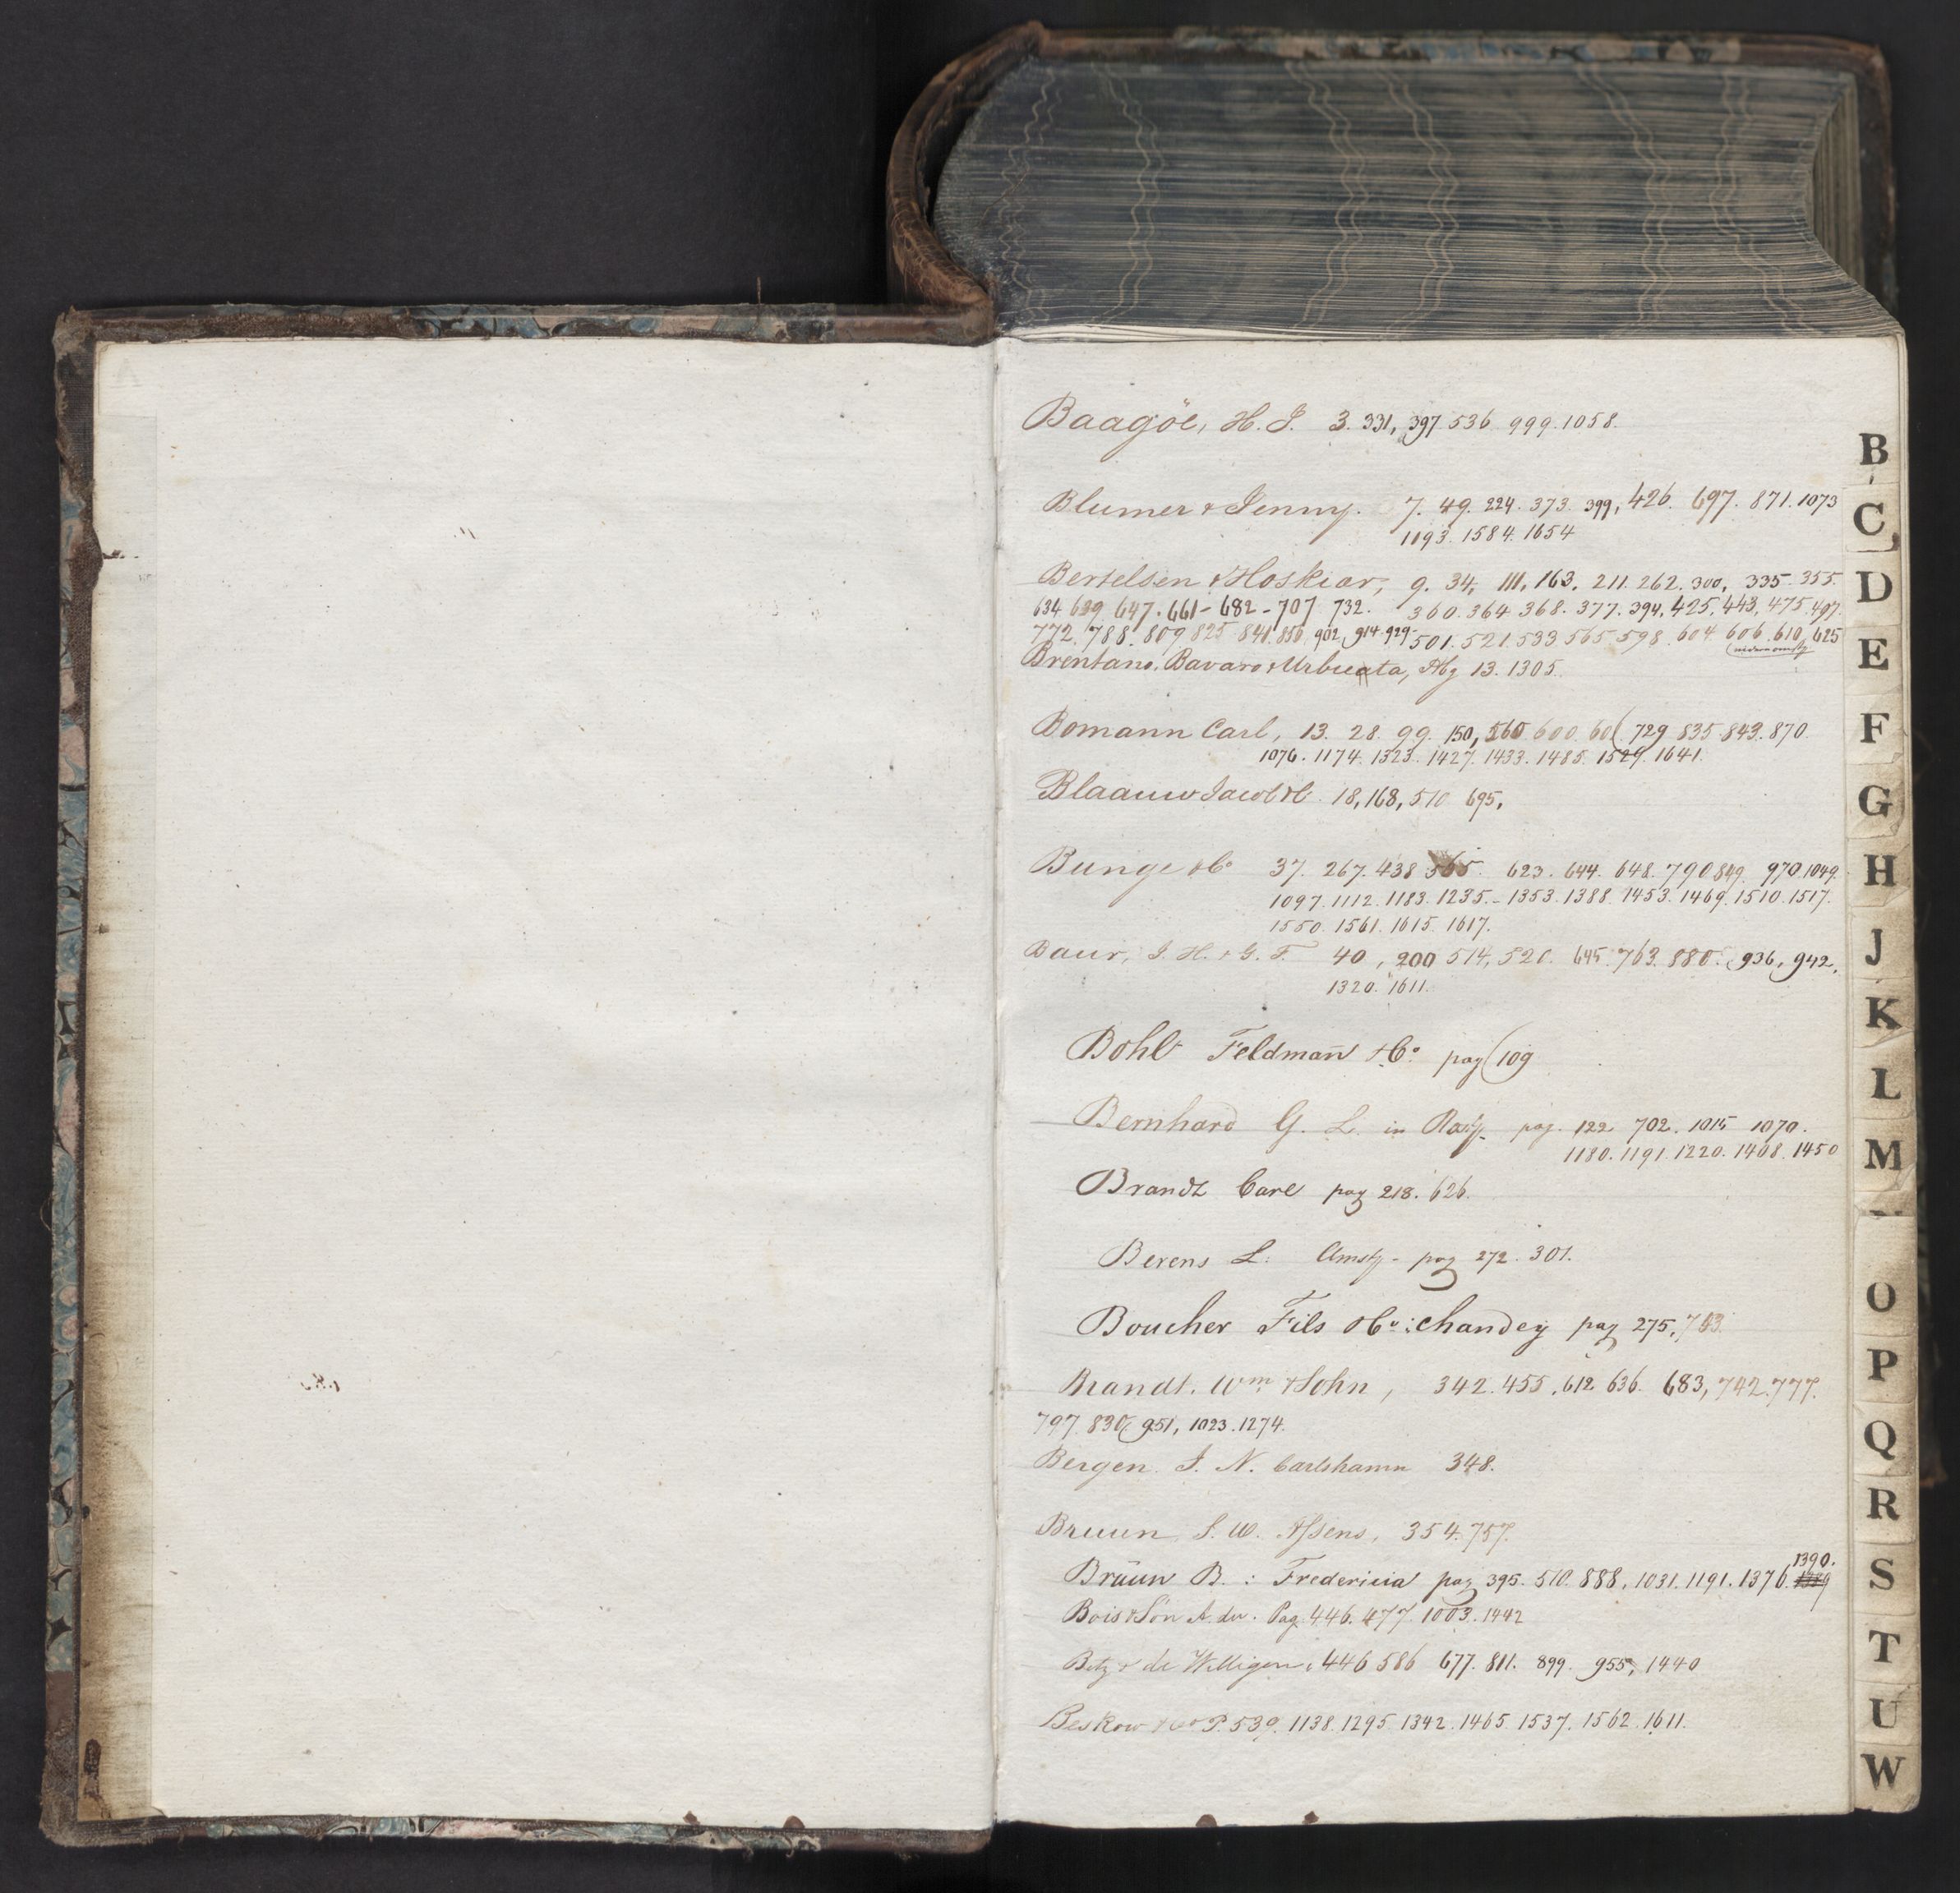 Baagöe, H. J. 3. 331, 397 536 999. 1058.
Blumer & Jenny. 7. 49. 224. 373. 399, 426. 697. 871. 1073
1193. 1584. 1654
Bertelsen & Hoskiær, 9. 34, 111, 163. 211. 262. 300, 335. 355.
634 639 647. 661 - 682 - 707 732. 360. 364 368. 377. 394. 425. 443. 475. 497.
772. 788. 809 825 841. 850. 902, 914. 929. 501. 521. 533 565. 598. 604 606. 610, 625
Brentano, Bavaro & Urbieata, Hbg 13. 1305.
Bomann Carl, 13. 28. 99. 150, 560 600. 601 729 835. 843. 870.
1076. 1174. 1323. 1427. 1433. 1485. 1529. 1641.
Blaauw Jacob & C. 18, 168, 510 695,
Bunge & Co 37. 267. 438 565. 623. 644. 648. 790 849. 970. 1049.
1097. 1112. 1183. 1235. - 1353. 1388. 1453. 1469. 1510. 1517.
1550. 1561. 1615. 1617.
Baur, J. H. & G. F. 40, 200 514, 520. 645. 763. 880. 936, 942,
1320. 1611.
Bohl Feldmañ & Co: pag 109
Bernhard G. L. in pag. 122 702. 1015 1070.
1180. 1191. 1220. 1408. 1450
Brandt Carl pag 218. 626.
Berens L: Amstg - pag 272. 301.
Boucher Fils & Co: Chandey pag 275, 703.
Brandt. Wm & Sohn, 342. 455. 612 636. 683, 742. 777.
797. 830 951, 1023. 1274.
Bergen J. N. Carlshamn 348.
Bruun S. W. Assens, 354. 757.
1390.
Brüun B. : Fredericia pag 395. 510. 888, 1031. 1191. 1376. 1389
Bois & Sön A. du. Pag. 446. 477. 1003. 1442
Betz & de Willigen, 446 586 677. 811. 899. 955, 1440
Beskow & Co P. 539. 1138. 1295. 1342. 1465. 1537. 1562. 1611.
B
C
D
E
F
G
H
J
K
L
M
O
P
Q
R
S
T
U
W